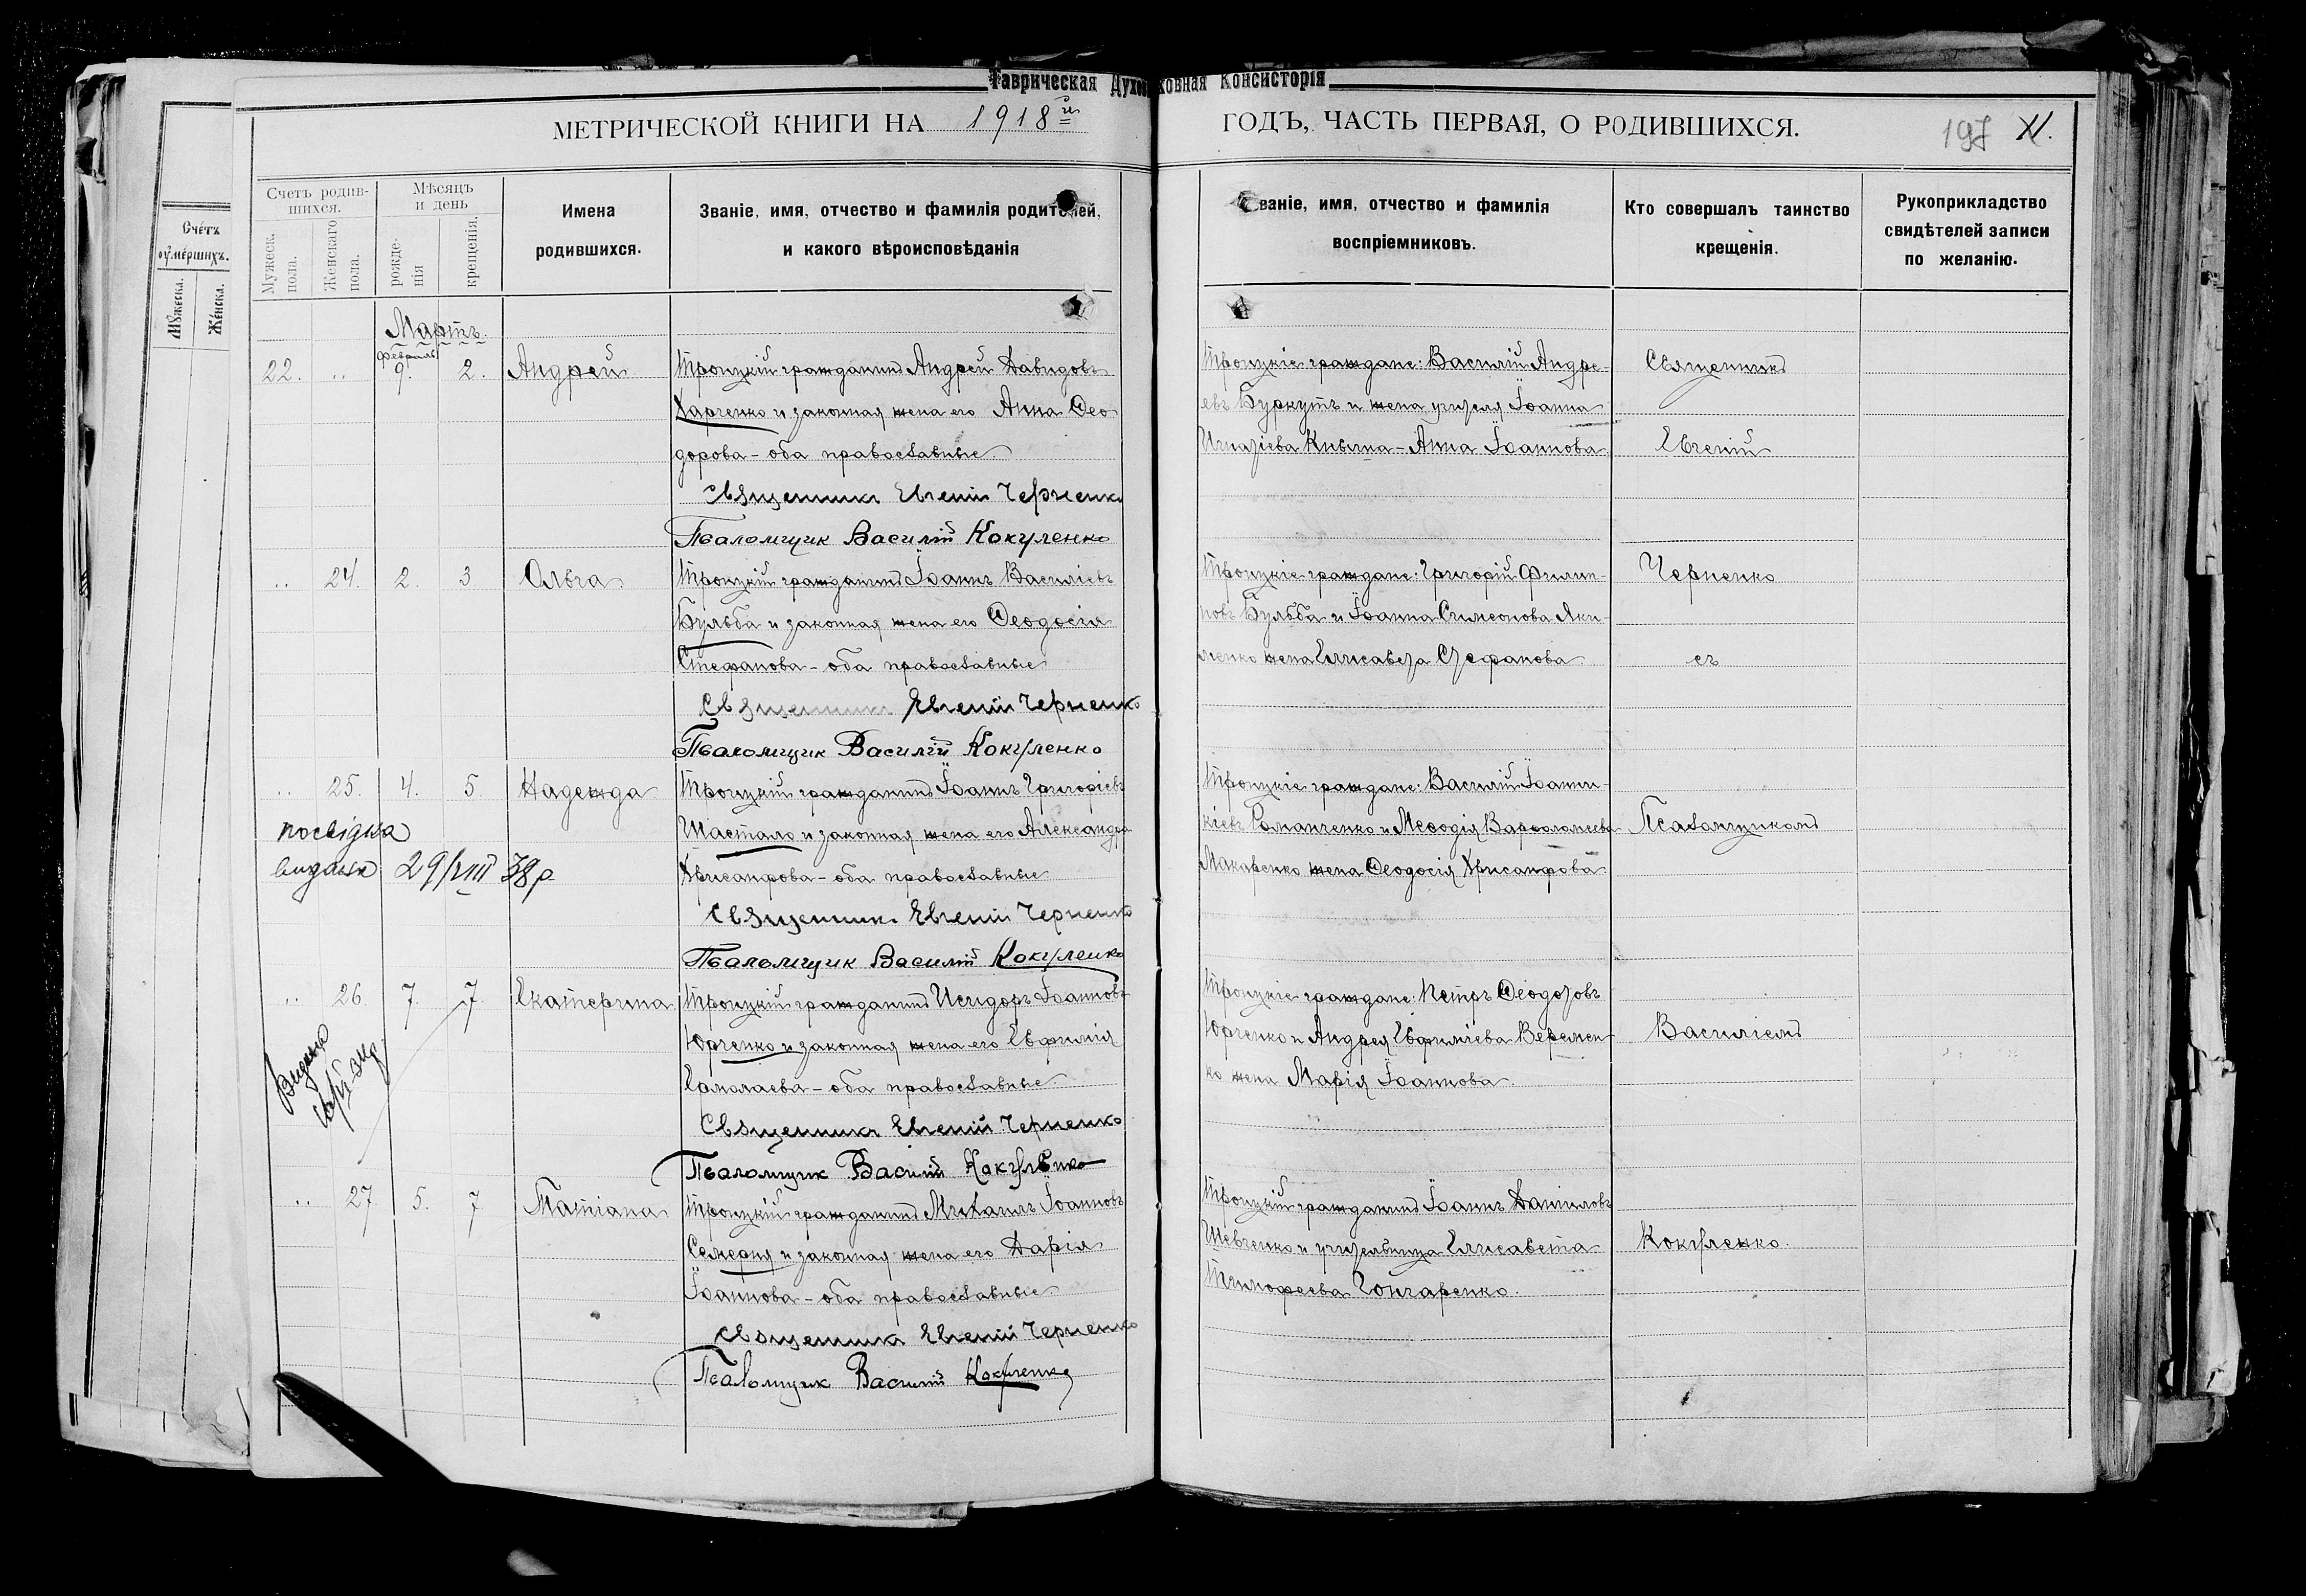 Таврическая Духовная Консисторія
МЕТРИЧЕСКОЙ КНИГИ НА 1918й ГОДЪ, ЧАСТЬ ПЕРВАЯ, О РОДИВШИХСЯ.
197
Счетъ
умершихъ.
Мужеска.
Женска.
Счетъ родив-
шихся.
Мужеск. пола.
Женскаго пола.
Мѣсяцъ
и день
рожде-
нія
крещенія.
Имена
родившихся.
Званіе, имя, отчество и фамилія родителей,
и какого вѣроисповѣданія
Званіе, имя, отчество и фамилія
воспріемниковъ.
Кто совершалъ таинство
крещенія.
Рукоприкладство
свидѣтелей записи
по желанію.
Мартъ.
Февраль
22. .. 9. 2. Андрей Троицкій гражданинъ Андрей Давидовъ
Харченко и законная жена его Анна Ѳео
дорова - оба православные
Священникъ Евгеній Черненко
Псаломщик Василій Кокуленко
.. 24. 2. 3. Ольга Троицкій гражданинъ Іоаннъ Василіевъ
Бульба и законная жена его Ѳеодосія
Стефанова - оба православные
Священникъ Евгеній Черненко
Псаломщик Василій Кокуленко
.. 25. 4. 5. Надежда Троицкій гражданинъ Іоаннъ Григоріевъ
Шастало и законная жена его Александра
Хрисанфова - оба православные
Священникъ Евгеній Черненко
Псаломщик Василій Кокуленко
посвідка
видана 29/VIII 38р
.. 26. 7. 7. Екатерина Троицкій гражданинъ Исидоръ Іоанновъ
Юрченко и законная жена его Евфимія
Ермолаева - оба православные
Священникъ Евгеній Черненко
Псаломщик Василій Кокуленко
.. 27. 5. 7 Татіана Троицкій гражданинъ Михаилъ Іоанновъ
и законная жена его Дарія
Іоаннова - оба православные
Священникъ Евгеній Черненко
Псаломщик Василій Кокуленко
Троицкіе граждане: Василій Андре-
евъ Буркутъ и жена учителя Іоанна
Игнатіева - Анна Іоаннова
Троицкіе граждане: Григорій Филип-
повъ Бульба и Іоанна Симеонова Яки-
менко жена Елисавета Стефанова
Троицкіе граждане: Василій Іоанни-
кіевъ Романченко и Меѳодія Варѳоломеева
Макаренко жена Ѳеодосія Хрисанфова
Троицкіе граждане: Петръ Ѳеодотовъ
Юрченко и Андрея Евфиміева Веремен-
ко жена Марія Іоаннова.
Троицкій гражданинъ Іоаннъ Даніиловъ
Шевченко и учительница Елисавета
Тимофеева Гончаренко.
Священникъ
Евгеній
Черненко
съ
Псаломщикомъ
Василіемъ
Кокуленко.